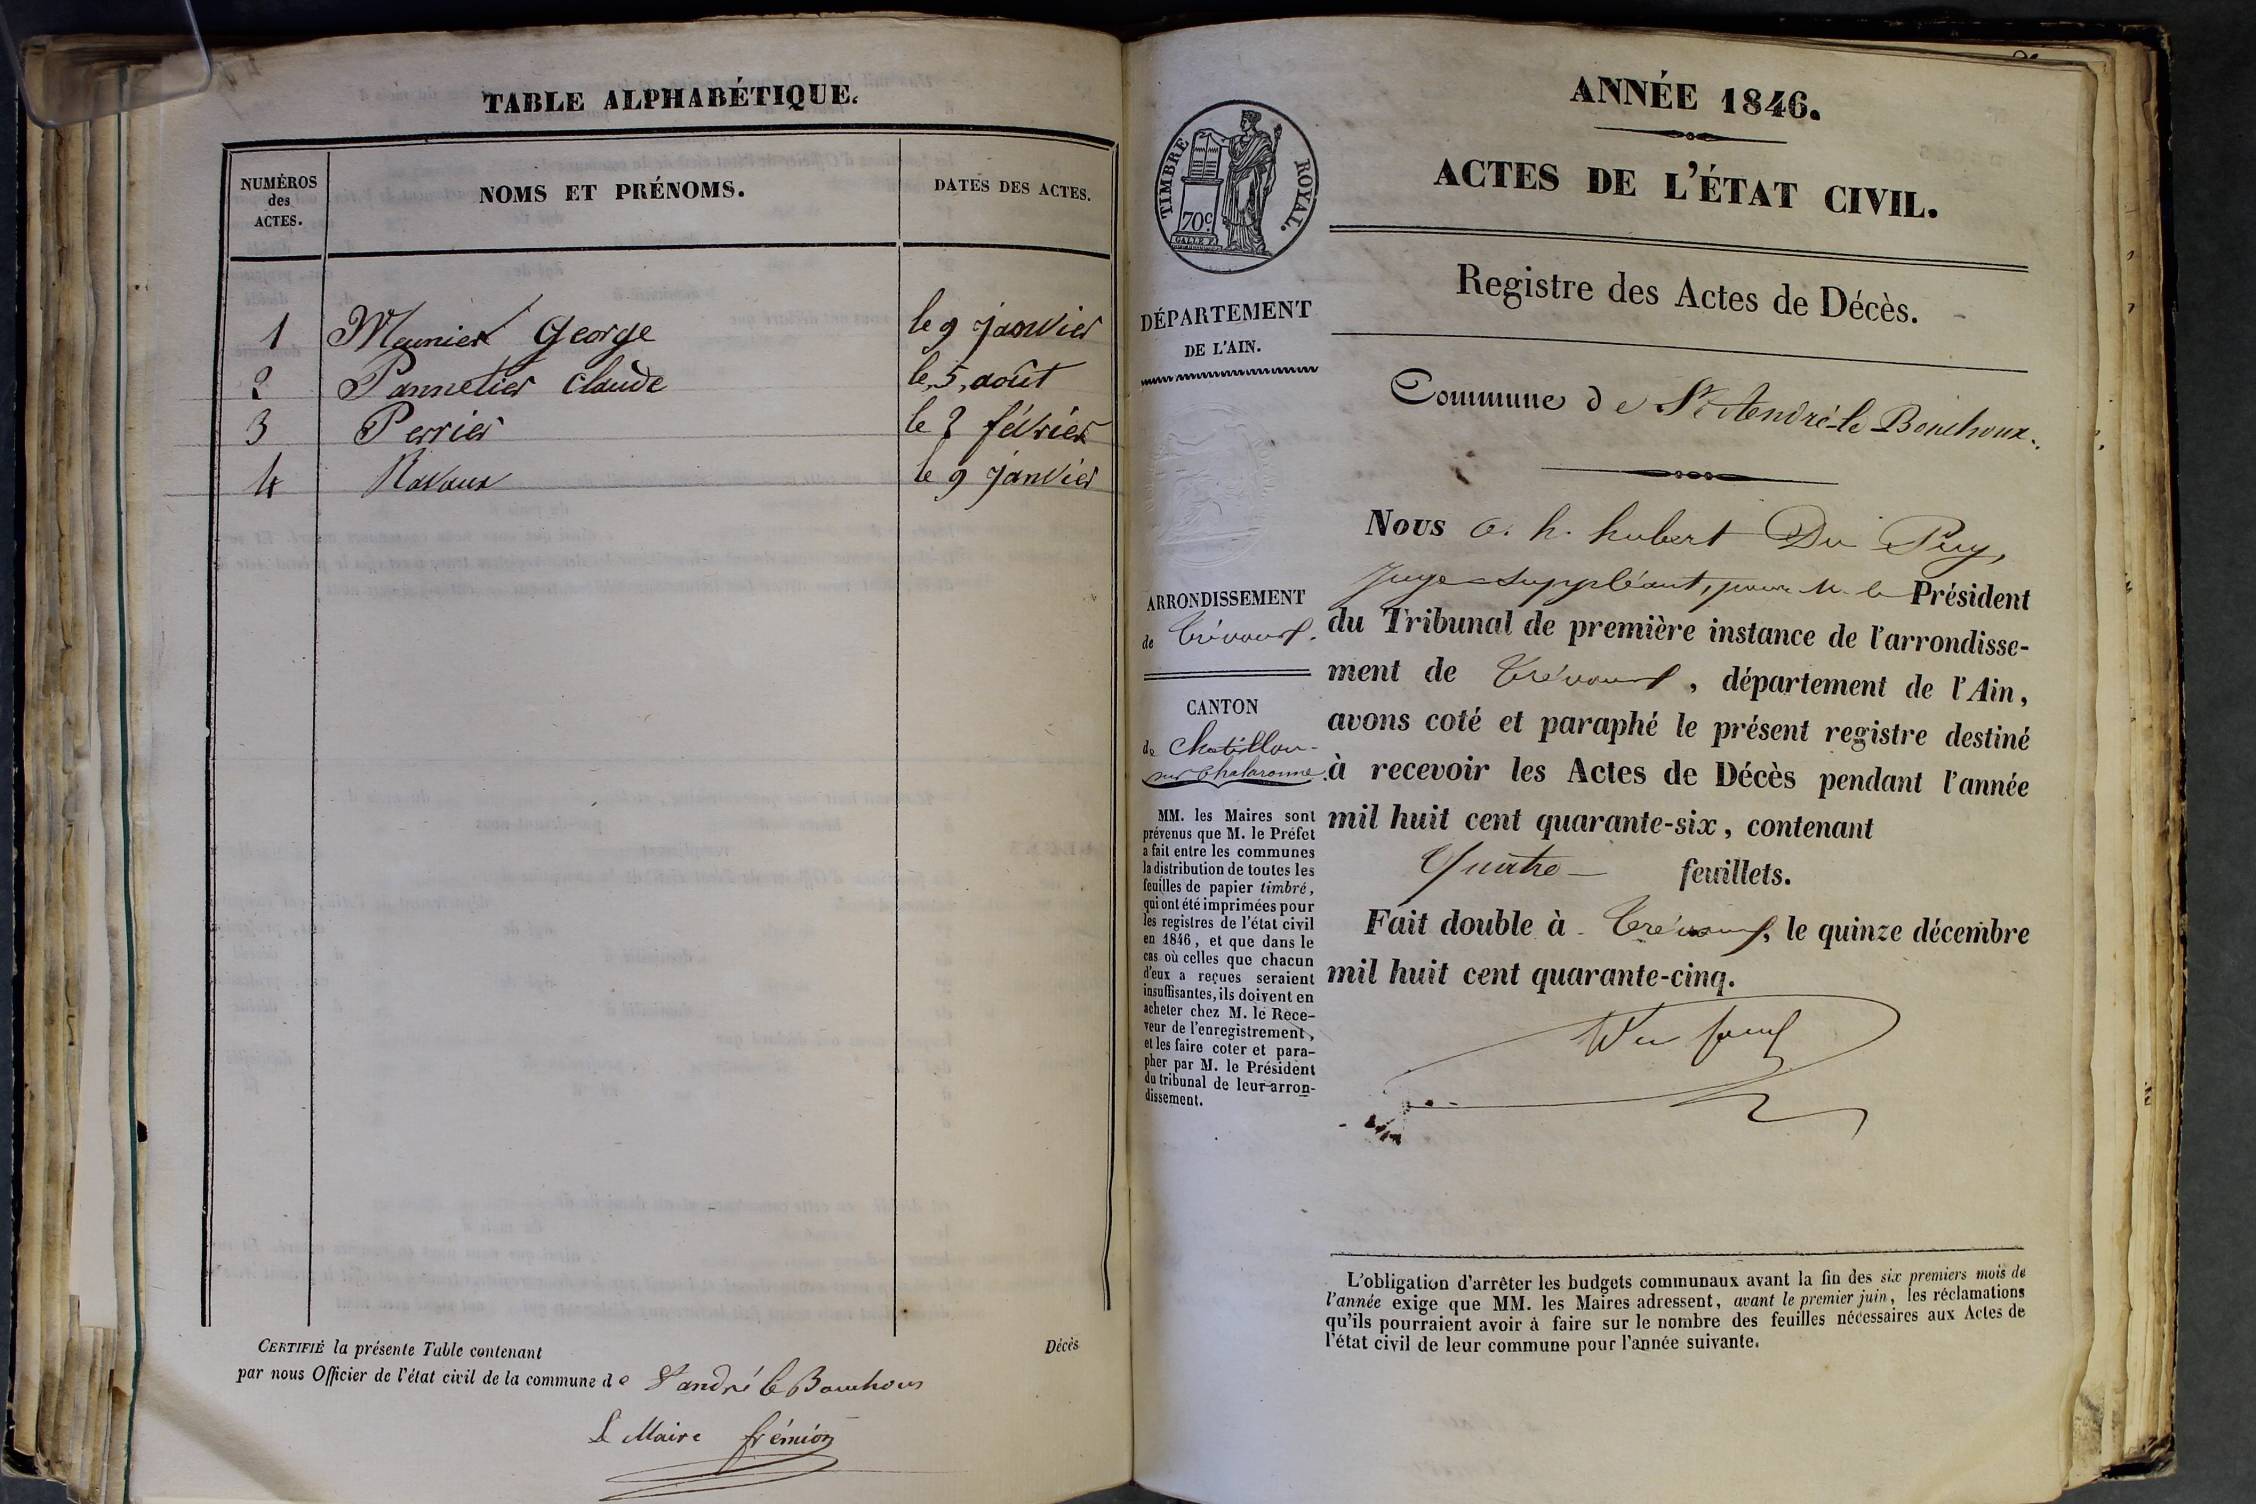 TABLE ALPHABÉTIQUE.
NUMÉROS
des
ACTES.
NOMS ET PRÉNOMS.
DATES DES ACTES.
1 Meunier George le 9 janvier
2 Pannetier Claude le 5, août
3 Perrier le 2 février
4 Ravaux le 9 janvier
CERTIFIÉ la présente Table contenant Décès
par nous Officier de l'état civil de la commune de St andré le Bouchoux
Le Maire frémion
TIMBRE ROYAL.
70c
GALLE F.
DÉPARTEMENT
DE L'AIN.
ARRONDISSEMENT
de Trévoux.
CANTON
de Chatillon-
sur Chalaronne.
MM. les Maires sont
prévenus que M. le Préfet
a fait entre les communes
la distribution de toutes les
feuilles de papier timbré,
qui ont été imprimées pour
les registres de l'état civil
en 1846, et que dans le
cas où celles que chacun
d'eux a reçues seraient
insuffisantes, ils doivent en
acheter chez M. le Rece-
veur de l'enregistrement,
et les faire coter et para-
pher par M. le Président
du tribunal de leur arron-
dissement.
ANNÉE 1846.
ACTES DE L'ÉTAT CIVIL.
Registre des Actes de Décès.
Commune de St André-le Bouchoux.
Nous a. h. hubert Du Puy,
Juge Suppléant, pour M. le Président
du Tribunal de première instance de l'arrondisse-
ment de Trévoux, département de l'Ain,
avons coté et paraphé le présent registre destiné
à recevoir les Actes de Décès pendant l'année
mil huit cent quarante-six, contenant
Quatre feuillets.
Fait double à Trévoux, le quinze décembre
mil huit cent quarante-cinq.
L'obligation d'arrêter les budgets communaux avant la fin des six premiers mois de
l'année exige que MM. les Maires adressent, avant le premier juin, les réclamations
qu'ils pourraient avoir à faire sur le nombre des feuilles nécessaires aux Actes de
l'état civil de leur commune pour l'année suivante.